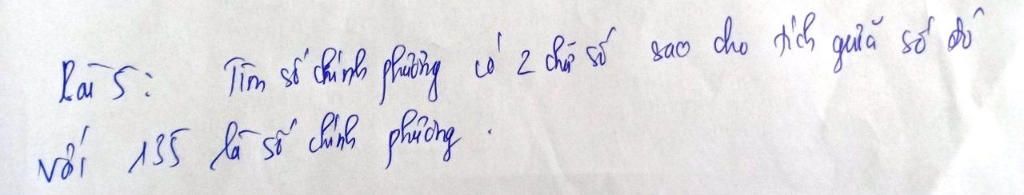 Bài 5: Tìm số chính phương có 2 chữ số sao cho tích giữa số đó
với 135 là số chính phương.